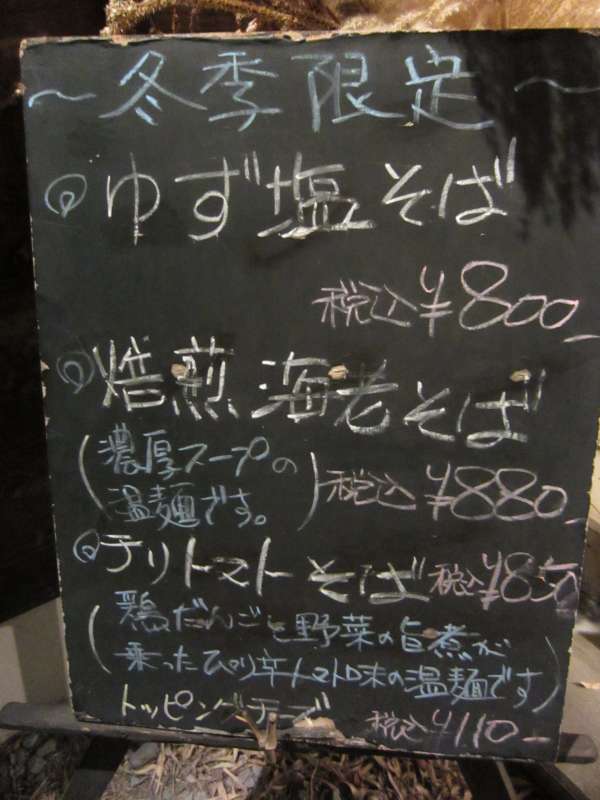 ～冬季限定～
ゆず塩そば
税込¥800-
焙煎海老そば
(濃厚スープの
温麺です。)
税込¥880-
チリトマトそば 税込¥850
(鶏だんごと野菜の旨煮が
乗ったぴり辛トマト味の温麺です)
トッピングチーズ 税込¥110-